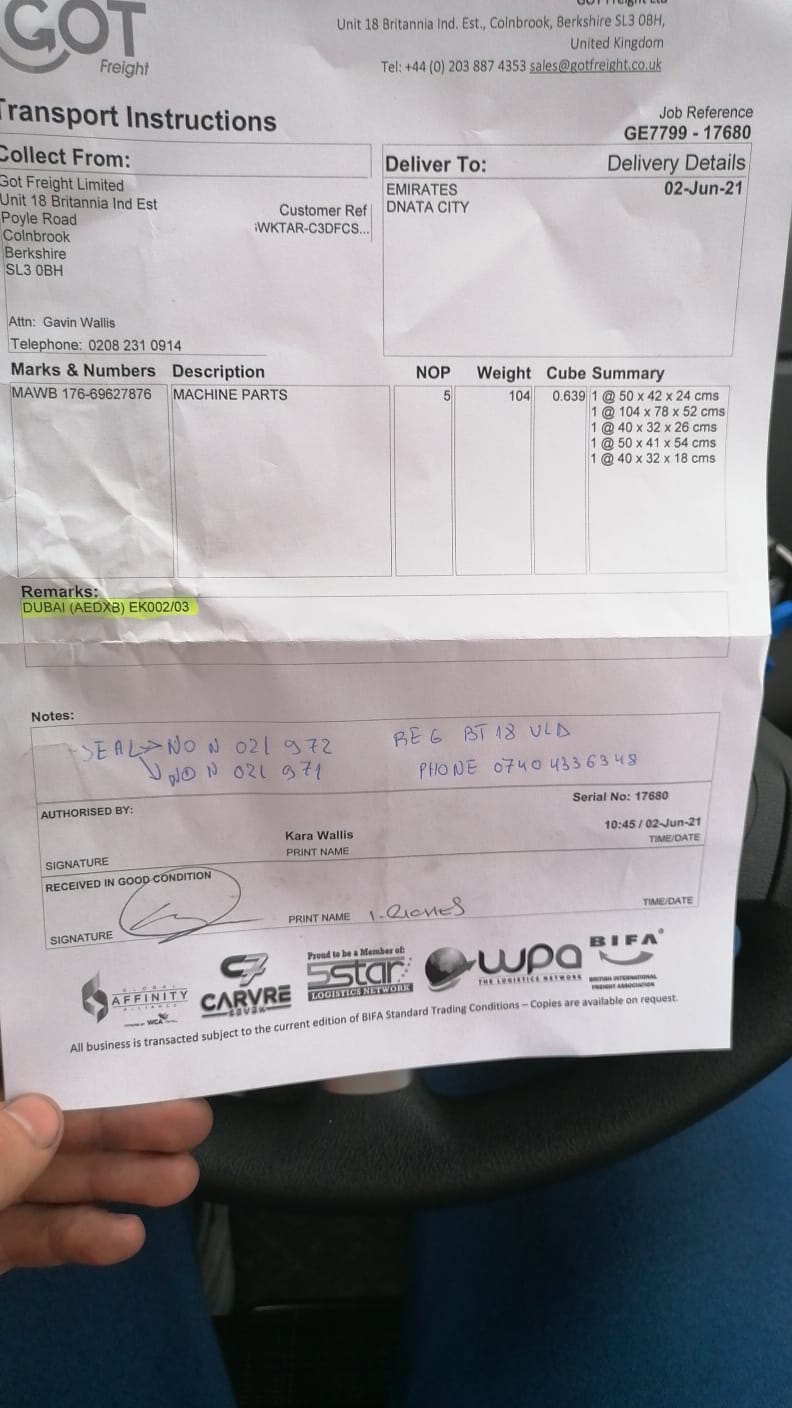 GOT
Freight
GOT Freight Ltd
Unit 18 Britannia Ind. Est., Colnbrook, Berkshire SL3 0BH,
United Kingdom
Tel: +44 (0) 203 887 4353 sales@gotfreight.co.uk
Transport Instructions
Job Reference
GE7799 - 17680
Collect From:
Got Freight Limited
Unit 18 Britannia Ind Est
Poyle Road
Colnbrook
Berkshire
SL3 0BH
Customer Ref
iWKTAR-C3DFCS...
Attn: Gavin Wallis
Telephone: 0208 231 0914
Deliver To:
Delivery Details
EMIRATES
DNATA CITY
02-Jun-21
Marks & Numbers Description NOP Weight Cube Summary
MAWB 176-69627876 MACHINE PARTS 5 104 0.639 1 @ 50 x 42 x 24 cms
1 @ 104 x 78 x 52 cms
1 @ 40 x 32 x 26 cms
1 @ 50 x 41 x 54 cms
1 @ 40 x 32 x 18 cms
Remarks:
DUBAI (AEDXB) EK002/03
Notes:
SEAL NO N 021 972 REG BT 18 VLD
NO N 021 971 PHONE 0740 4336348
Serial No: 17680
AUTHORISED BY:
Kara Wallis 10:45 / 02-Jun-21
SIGNATURE PRINT NAME TIME/DATE
RECEIVED IN GOOD CONDITION
SIGNATURE PRINT NAME TIME/DATE
GLOBAL
AFFINITY
ALLIANCE
WCA
C7
CARVRE
SEVEN
Proud to be a Member of:
5star
LOGISTICS NETWORK
wpa
THE LOGISTICS NETWORK
BIFA
BRITISH INTERNATIONAL
FREIGHT ASSOCIATION
All business is transacted subject to the current edition of BIFA Standard Trading Conditions – Copies are available on request.